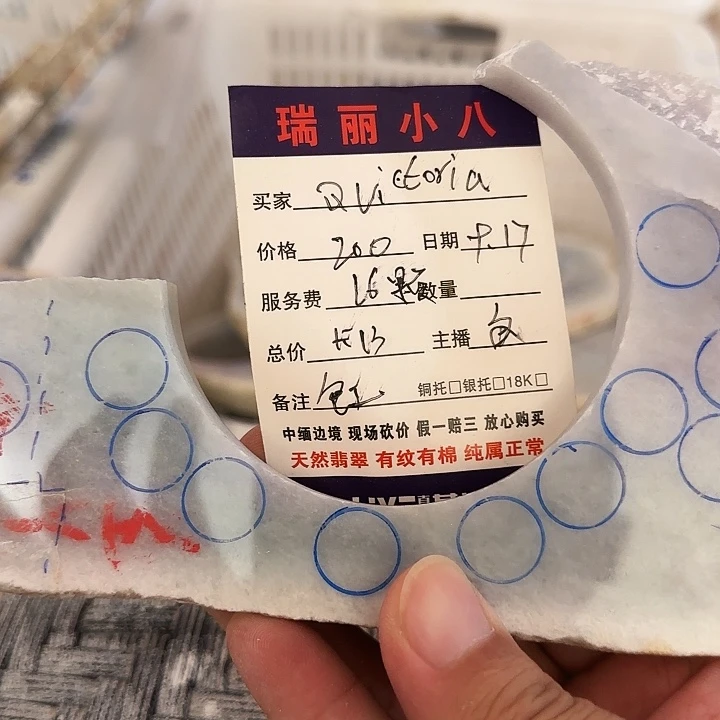 瑞丽小八
买家 Victoria
价格 200 日期 9.17
服务费 16颗 数量
总价 主播
备注 铜托□银托□18K□
中缅边境 现场砍价 假一赔三 放心购买
天然翡翠 有纹有棉 纯属正常